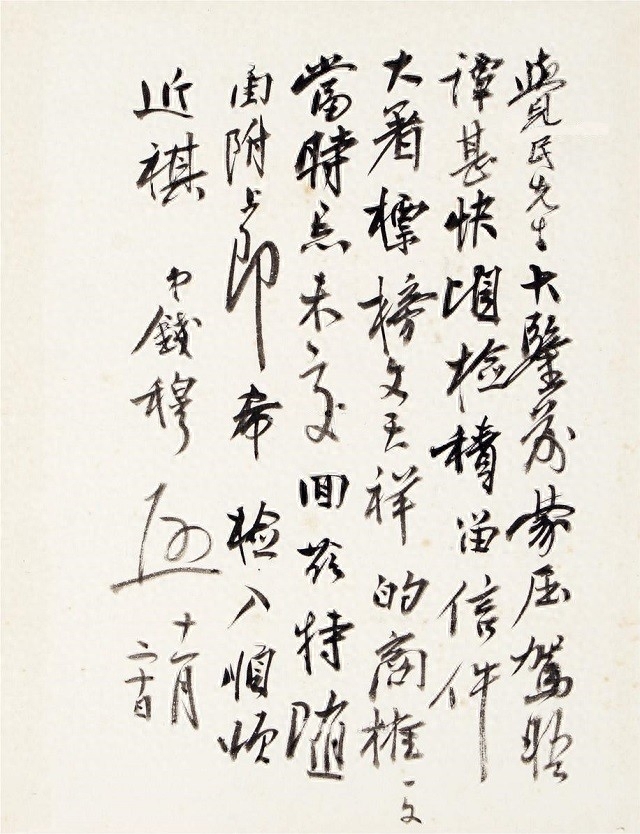 覺民先生大鑒前蒙屈駕晤
譚甚快頃檢積留信件
大著標榜文天祥的商榷一文
當時忘未交回茲特隨
函附上即希檢入順頌
近祺 弟錢穆 十一月
二十日